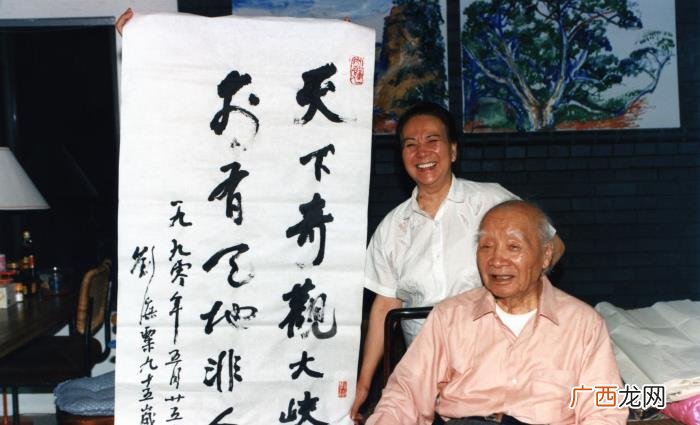 天下奇觀大峽
别有天地非人
一九九零年五月廿五
劉海粟九十五歲
广西龙网